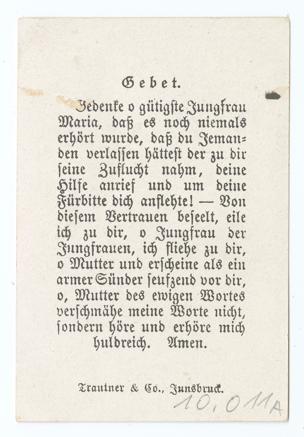 Gebet.
Jedenke o gütigste Jungfrau
Maria, daß es noch niemals
erhört wurde, daß du Jeman-
den verlassen hättest der zu dir
seine Zuflucht nahm, deine
Hilfe anrief und um deine
Fürbitte dich anflehte! — Von
diesem Vertrauen beseelt, eile
ich zu dir, o Jungfrau der
Jungfrauen, ich fliehe zu dir,
o Mutter und erscheine als ein
armer Sünder seufzend vor dir,
o, Mutter des ewigen Wortes
verschmähe meine Worte nicht,
sondern höre und erhöre mich
huldreich. Amen.
Trautner & Co., Innsbruck.
10.011A